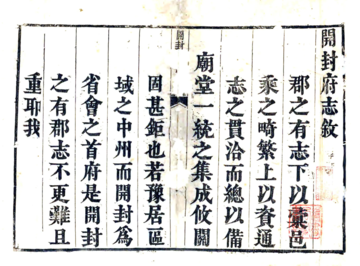 開封府志敘
郡之有志下以稾邑
乘之畸繁上以資通
志之貫洽而總以備
開封
廟堂一統之集成攸關
固甚鉅也若豫居區
域之中州而開封為
省會之首府是開封
之有郡志不更難且
重耶我